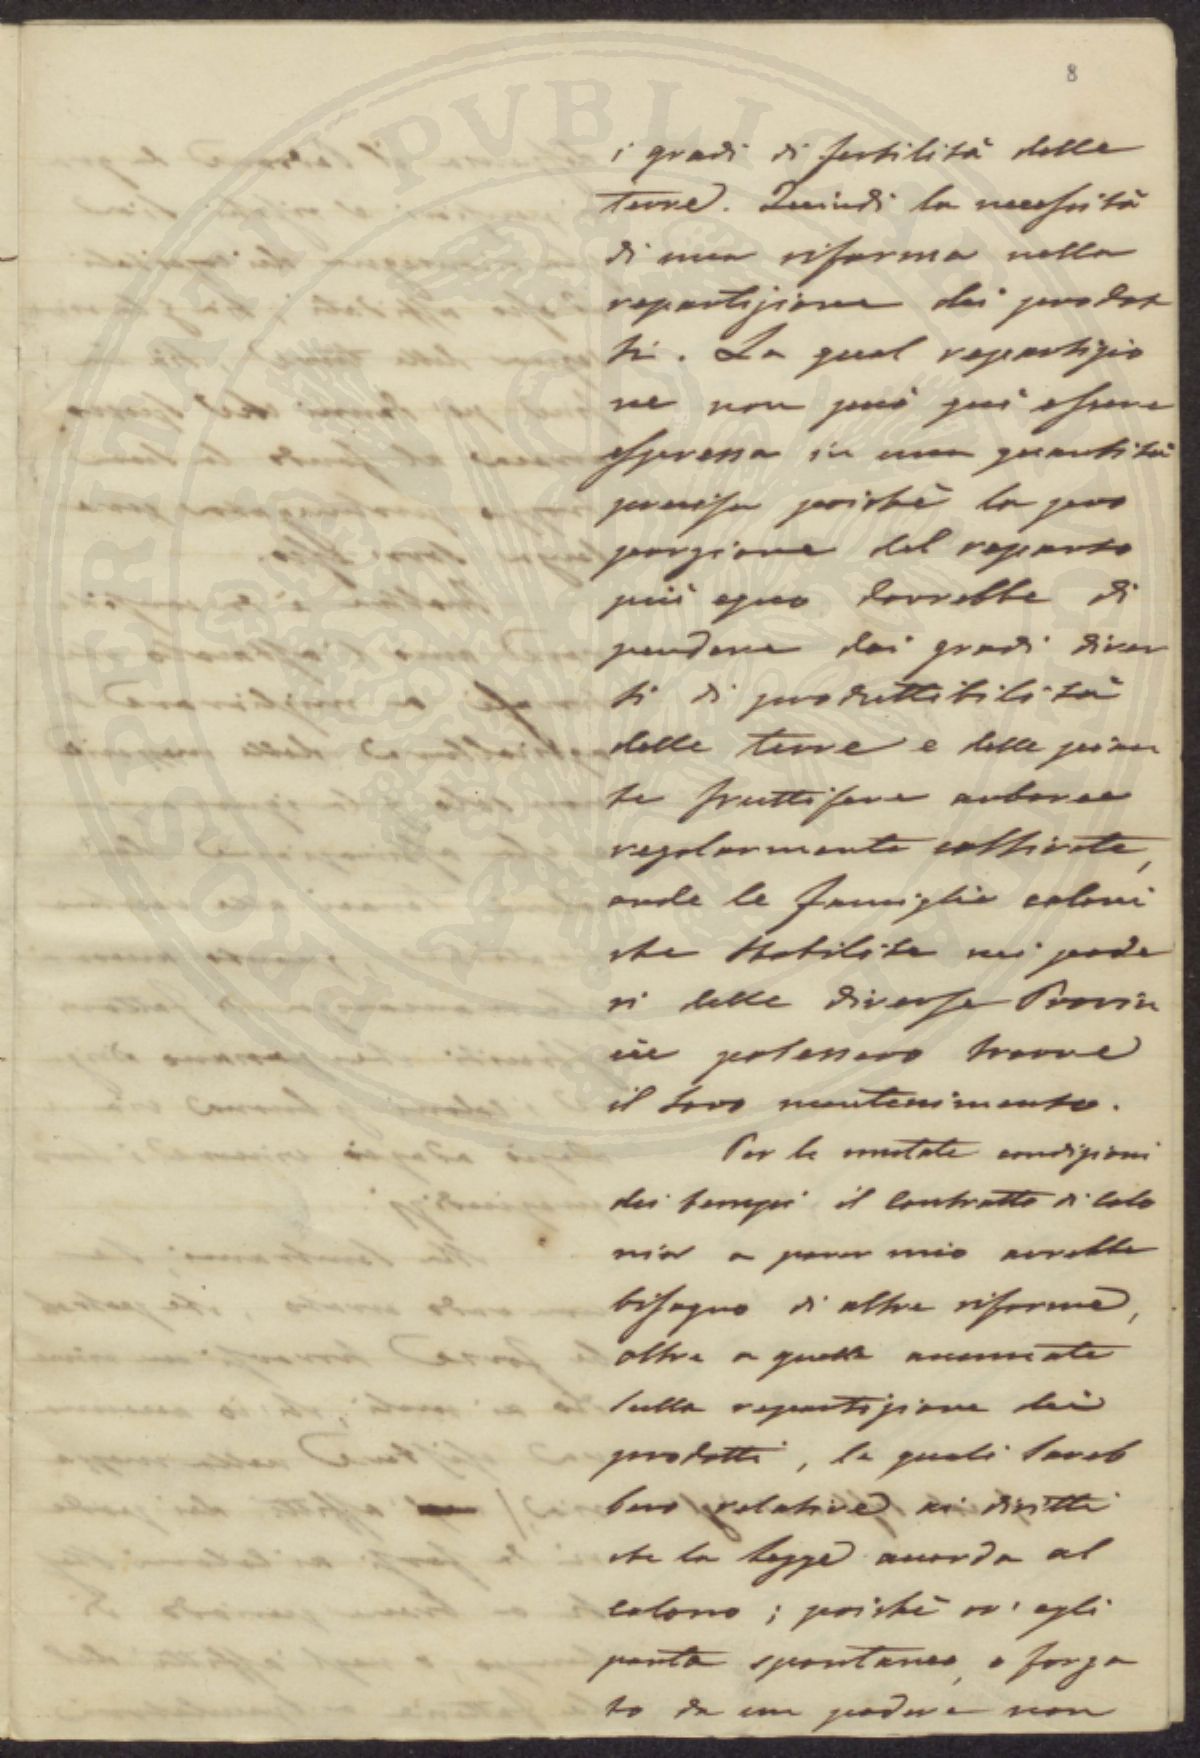 8
i gradi di fertilità delle
terre. Quindi la necessità
di una riforma nella
repartizione dei prodot
ti. La qual repartizio
ne non può qui essere
espressa in una quantità
precisa poichè la pro
porzione del reparto
più equo dovrebbe di
pendere dai gradi diver
si di produttibilità
delle terre e delle pian
te fruttifere arboree
regolarmente coltivate,
onde le famiglie coloni
che stabilite nei pode
ri delle diverse Provin
cie potessero trovare
il loro mantenimento.
Per le mutate condizioni
dei tempi il contratto di colo
nia a parer mio avrebbe
bisogno di altre riforme,
oltre a quelle accennate
sulla repartizione dei
prodotti, le quali sareb
bero relative ai diritti
che la legge accorda al
colono; poichè ov' egli
parta spontaneo, o forza
to da un podere non